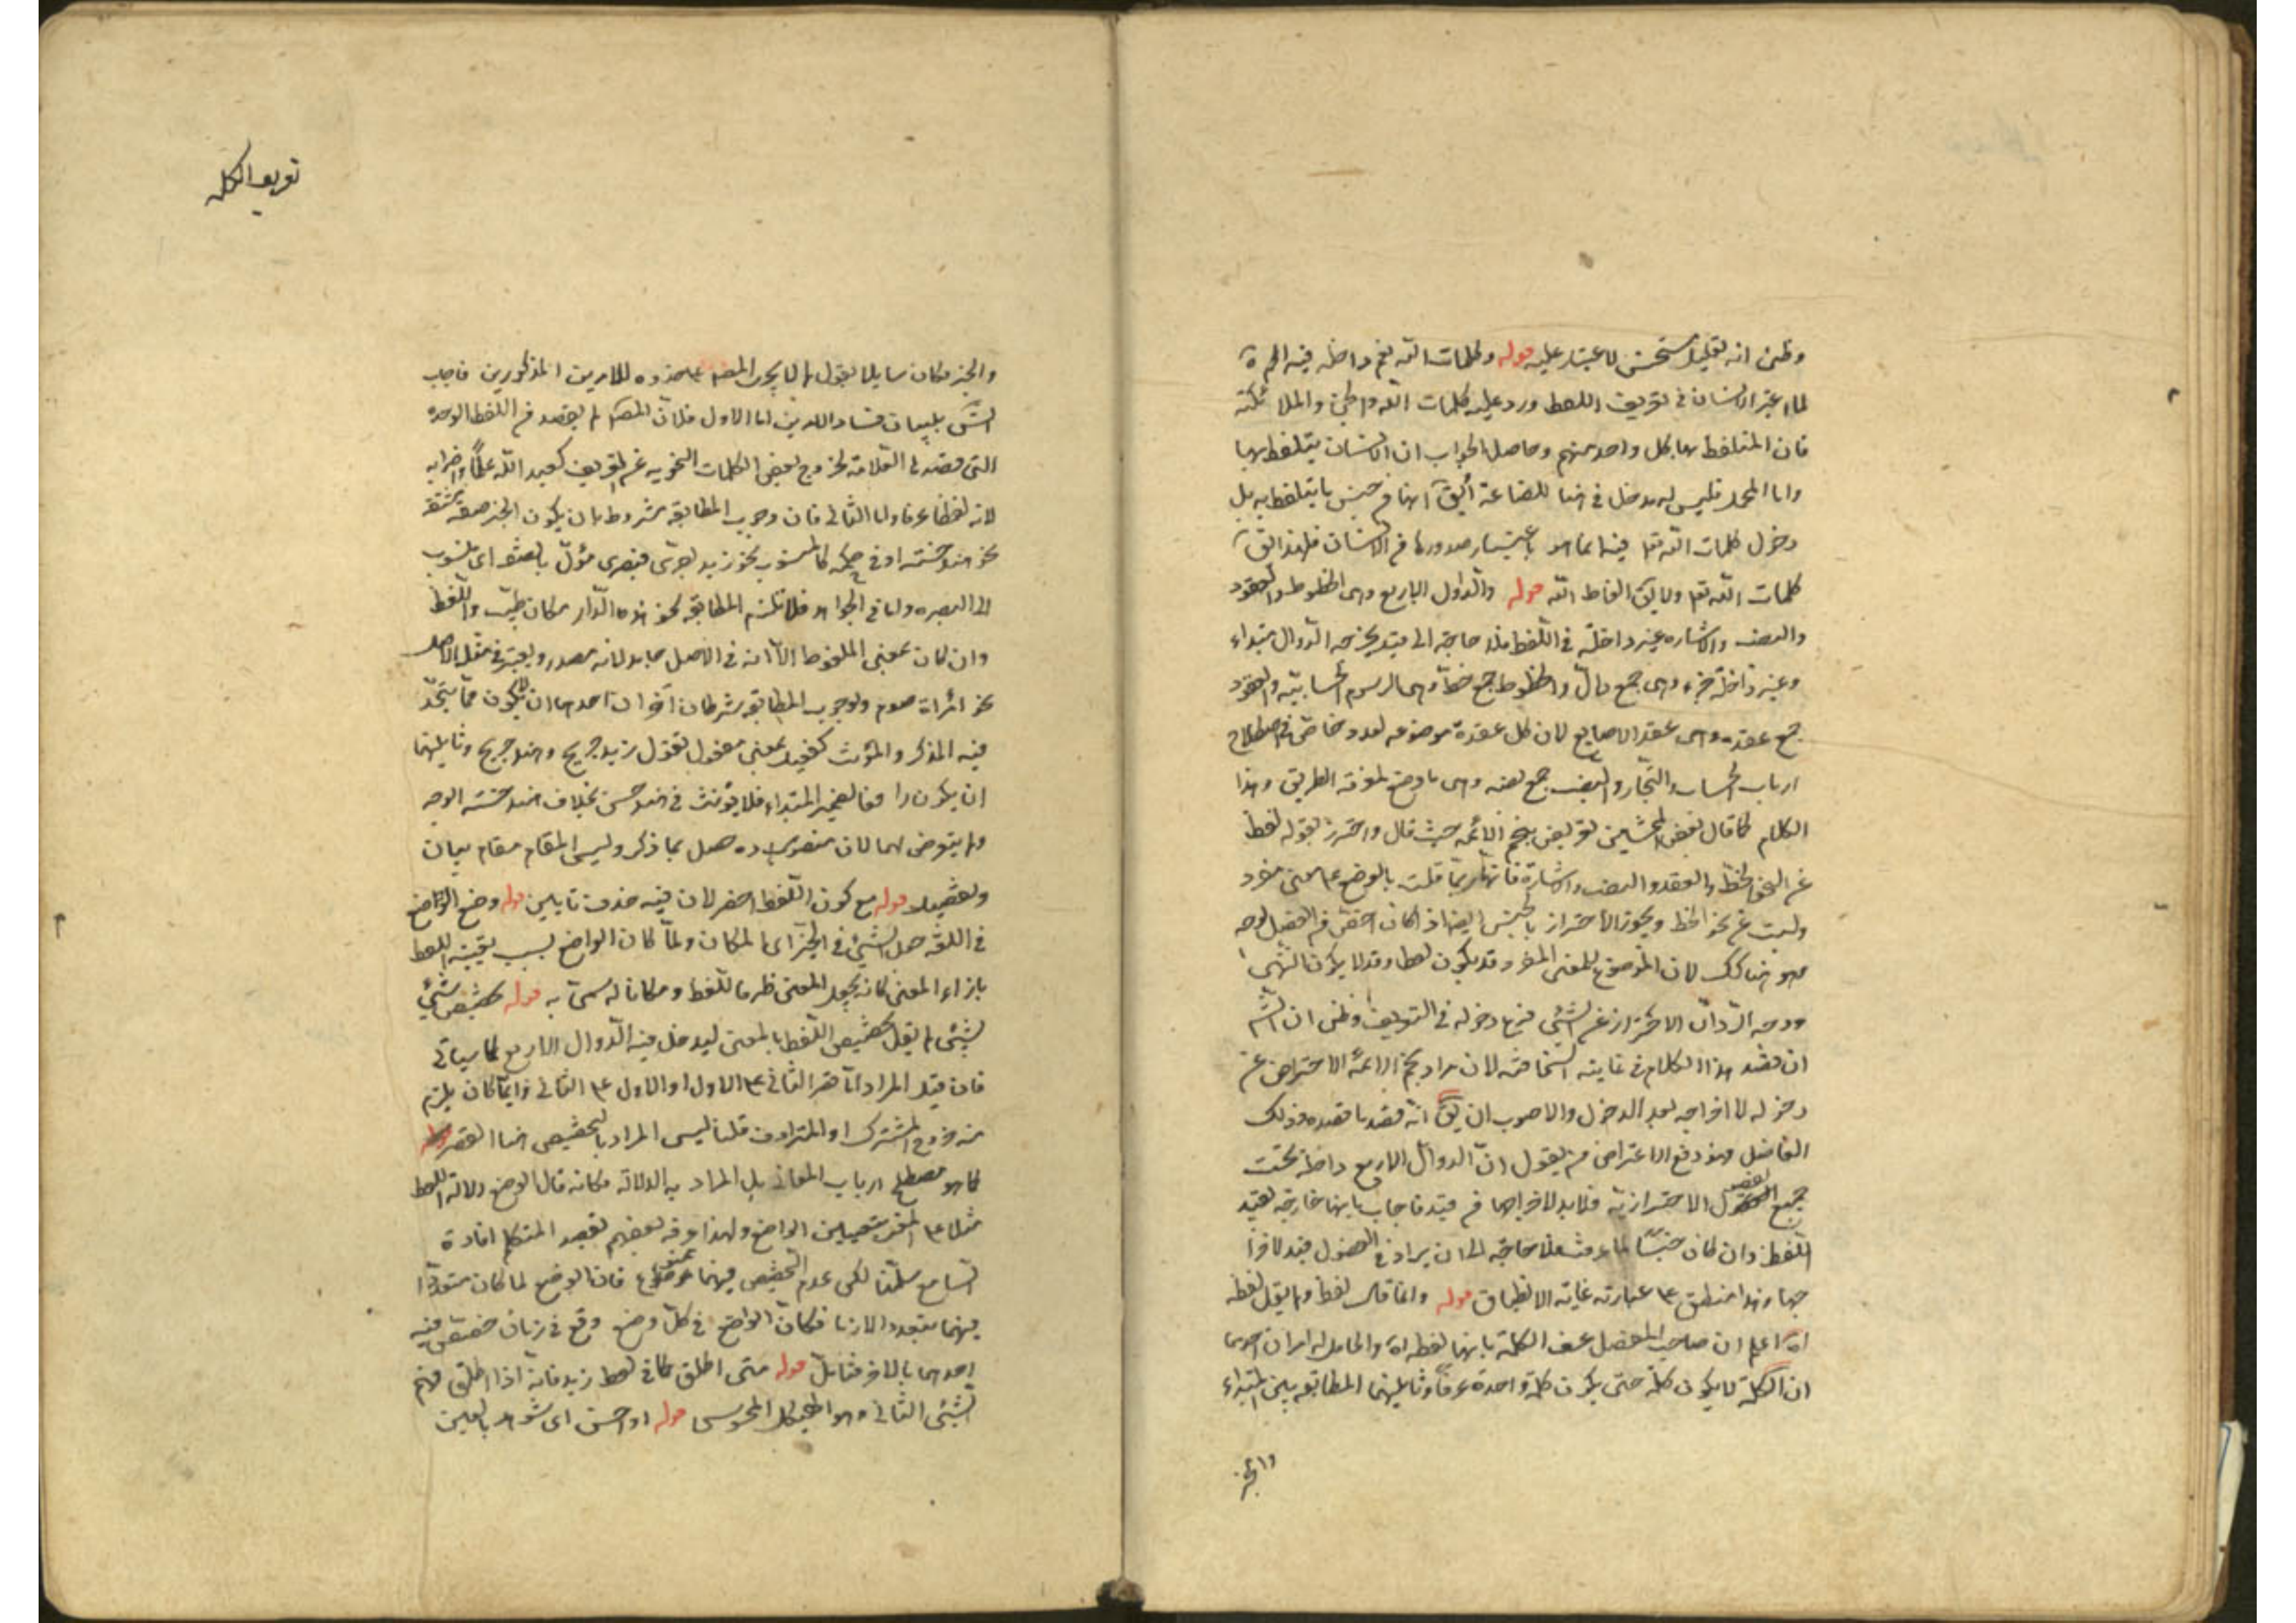 وظنى انه تعليل مستحسن لا غبار عليه قوله وكلمات الله تعم داخلة فيه الجرة
لما اعتبر الانسان فى تعريف اللفظ ورد عليه كلمات الله والجن والملائكة
فان المتلفظ بها كل واحد منهم وحاصل الجواب ان الانسان يتلفظ بها
واما المحل فليس له مدخل فى هذا الصناعة انها من جنس ما يتلفظ به بل
دخول كلمات الله تعا فيه انما هو باعتبار صدورها من الانسان فلهذا يق
كلمات الله تعا ولا يق الفاظ الله قوله والدوال الاربع وهى الخطوط والعقود
والنصب والاشارة غير داخلة فى اللفظ فلا حاجة الى قيد يخرجه الدوال مبتداء
وغير داخلة خبره وهى جمع دال والخطوط جمع خط وهى الرسوم الحسابية والعقود
جمع عقدة وهى عقد الاصابع لان كل عقدة موضوعه لعدد خاص فى اصطلاح
ارباب الحساب والتجار والنصب جمع نصبه وهى ما وضع لمعرفة الطريق وهذا
الكلام كما قال بعض المحشين تعريض بنجم الائمه حيث قال واحترز بقوله لفظ
عن نحو الخط والعقد والنصب والاشارة فانها ربما دلت بالوضع على معنى مفرد
وليست غن نحو الخط ويجوز الاحتراز بالجنس ايضا اذا كان اخص من الفصل بوجه
وهو هنا كك لان الموضوع للمعنى المفرد قد يكون لفظا وقد لا يكون انتهى
ووجه الرد ان الاحتراز عن الشئ فرع دخوله فى التعريف وظنى ان الش
ان قصد هذا الكلام فى غاية السخافة لان مراد نجم الائمة الاحتراض عن
دخوله لا اخراجه بعد الدخول والاصوب ان يق انه قصد ما قصده وذلك
الفاضل وهو دفع الاعتراض من يقول ان الدوال الاربع داخلة تحت
جميع الفصول الاحترازية فلا بد لاخراجها من قيد فاجاب بانها خارجة بقيد
اللفظ وان كان جنسا لما عرفت فلا حاجة الى ان يراد فى الفصول قيد لاخرا
جها وهذا منطبق على عبارته غاية الانطباق قوله وانما قال لفظ ولم يقل لفظة
اه اعلم ان صاحب المفصل عرف الكلمة بانها لفظة اه والحامل له امران احدهما
ان الكلمة لا يكون كلمة حتى يكون كلمة واحدة عرفا وثانيهما المطابقة بين المبتداء
والخبر
تعريف الكلمه
والخبر فكان سايلا يقول لم لا يجرى المص على حذوه للامرين المذكورين فاجاب
الش ببيان فساد الامرين اما الاول فلان المص لم يقصد من اللفظ الوحده
التى قصدها العلامة لخروج بعض الكلمات النحويه عن التعريف كعبد الله علما واضرابه
لانه لفظا عرفا واما الثانى فان وجوب المطابقة مشروط بان يكون الخبر صفة مشتقة
نحو هند حسنة او فى حكمه كالمنسوب نحو زيد بصرى فبصرى مؤل بالمشتق اى منسوب
الى البصره واما فى الجوامد فلا تلزم المطابقة نحو هذه الدار مكان طيب واللفظ
وان كان بمعنى الملفوظ الا انه فى الاصل جامد لانه مصدر ويعتبر فى مثله الاصل
نحو امراة صوم ولوجوب المطابقة شرطان آخران احدهما ان لا يكون مما يتحد
فيه المذكر والمؤنث كفعيل بمعنى مفعول تقول زيد جريح وهند جريح وثانيهما
ان يكون رافعا لضمير المبتداء فلا يؤنث فى هند حسن بخلاف هند حسنة الوجه
ولم يتعرض لهما لان مقصوده حصل بما ذكر وليس المقام مقام بيان
وتفصيله قوله مع كون اللفظ اخصر لان فيه حذف تا يبين قوله وضع الواضع
فى اللغة جعل الشئ فى الحيز اى المكان ولما كان الواضع بسبب تعيينه اللفظ
بازاء المعنى كانه يجعل المعنى ظرفا للفظ ومكانا له سمى به قوله تخصيص شئ
بشئ لم يقل تخصيص اللفظ بالمعنى ليدخل فيه الدوال الاربع كما سياتى
فان قيل المراد اما قصر الثانى على الاول او الاول على الثانى وايا ما كان يلزم
منه خروج المشترك او المترادف قلنا ليس المراد بالتخصيص هنا القصر
كما هو مصطلح ارباب المعانى بل المراد به الدلالة فكانه قال الوضع دلالة اللفظ
مثلا على المعنى بتعيين الواضع ولهذا عرفه بعضهم بقصد المتكلم افادة
السامع سلمنا لكن عدم التخصيص فيهما ممنوع فان الوضع لما كان متعددا
فيهما بتعدد الازمنا فكان الواضع فى كل وضع وقع فى زمان خصص فيه
احدهما بالاخر فتامل قوله متى اطلق كما فى لفظ زيد فانه اذا اطلق فهم
الشئ الثانى وهو الهيكل المحسوس قوله او احس اى شوهد بالعين